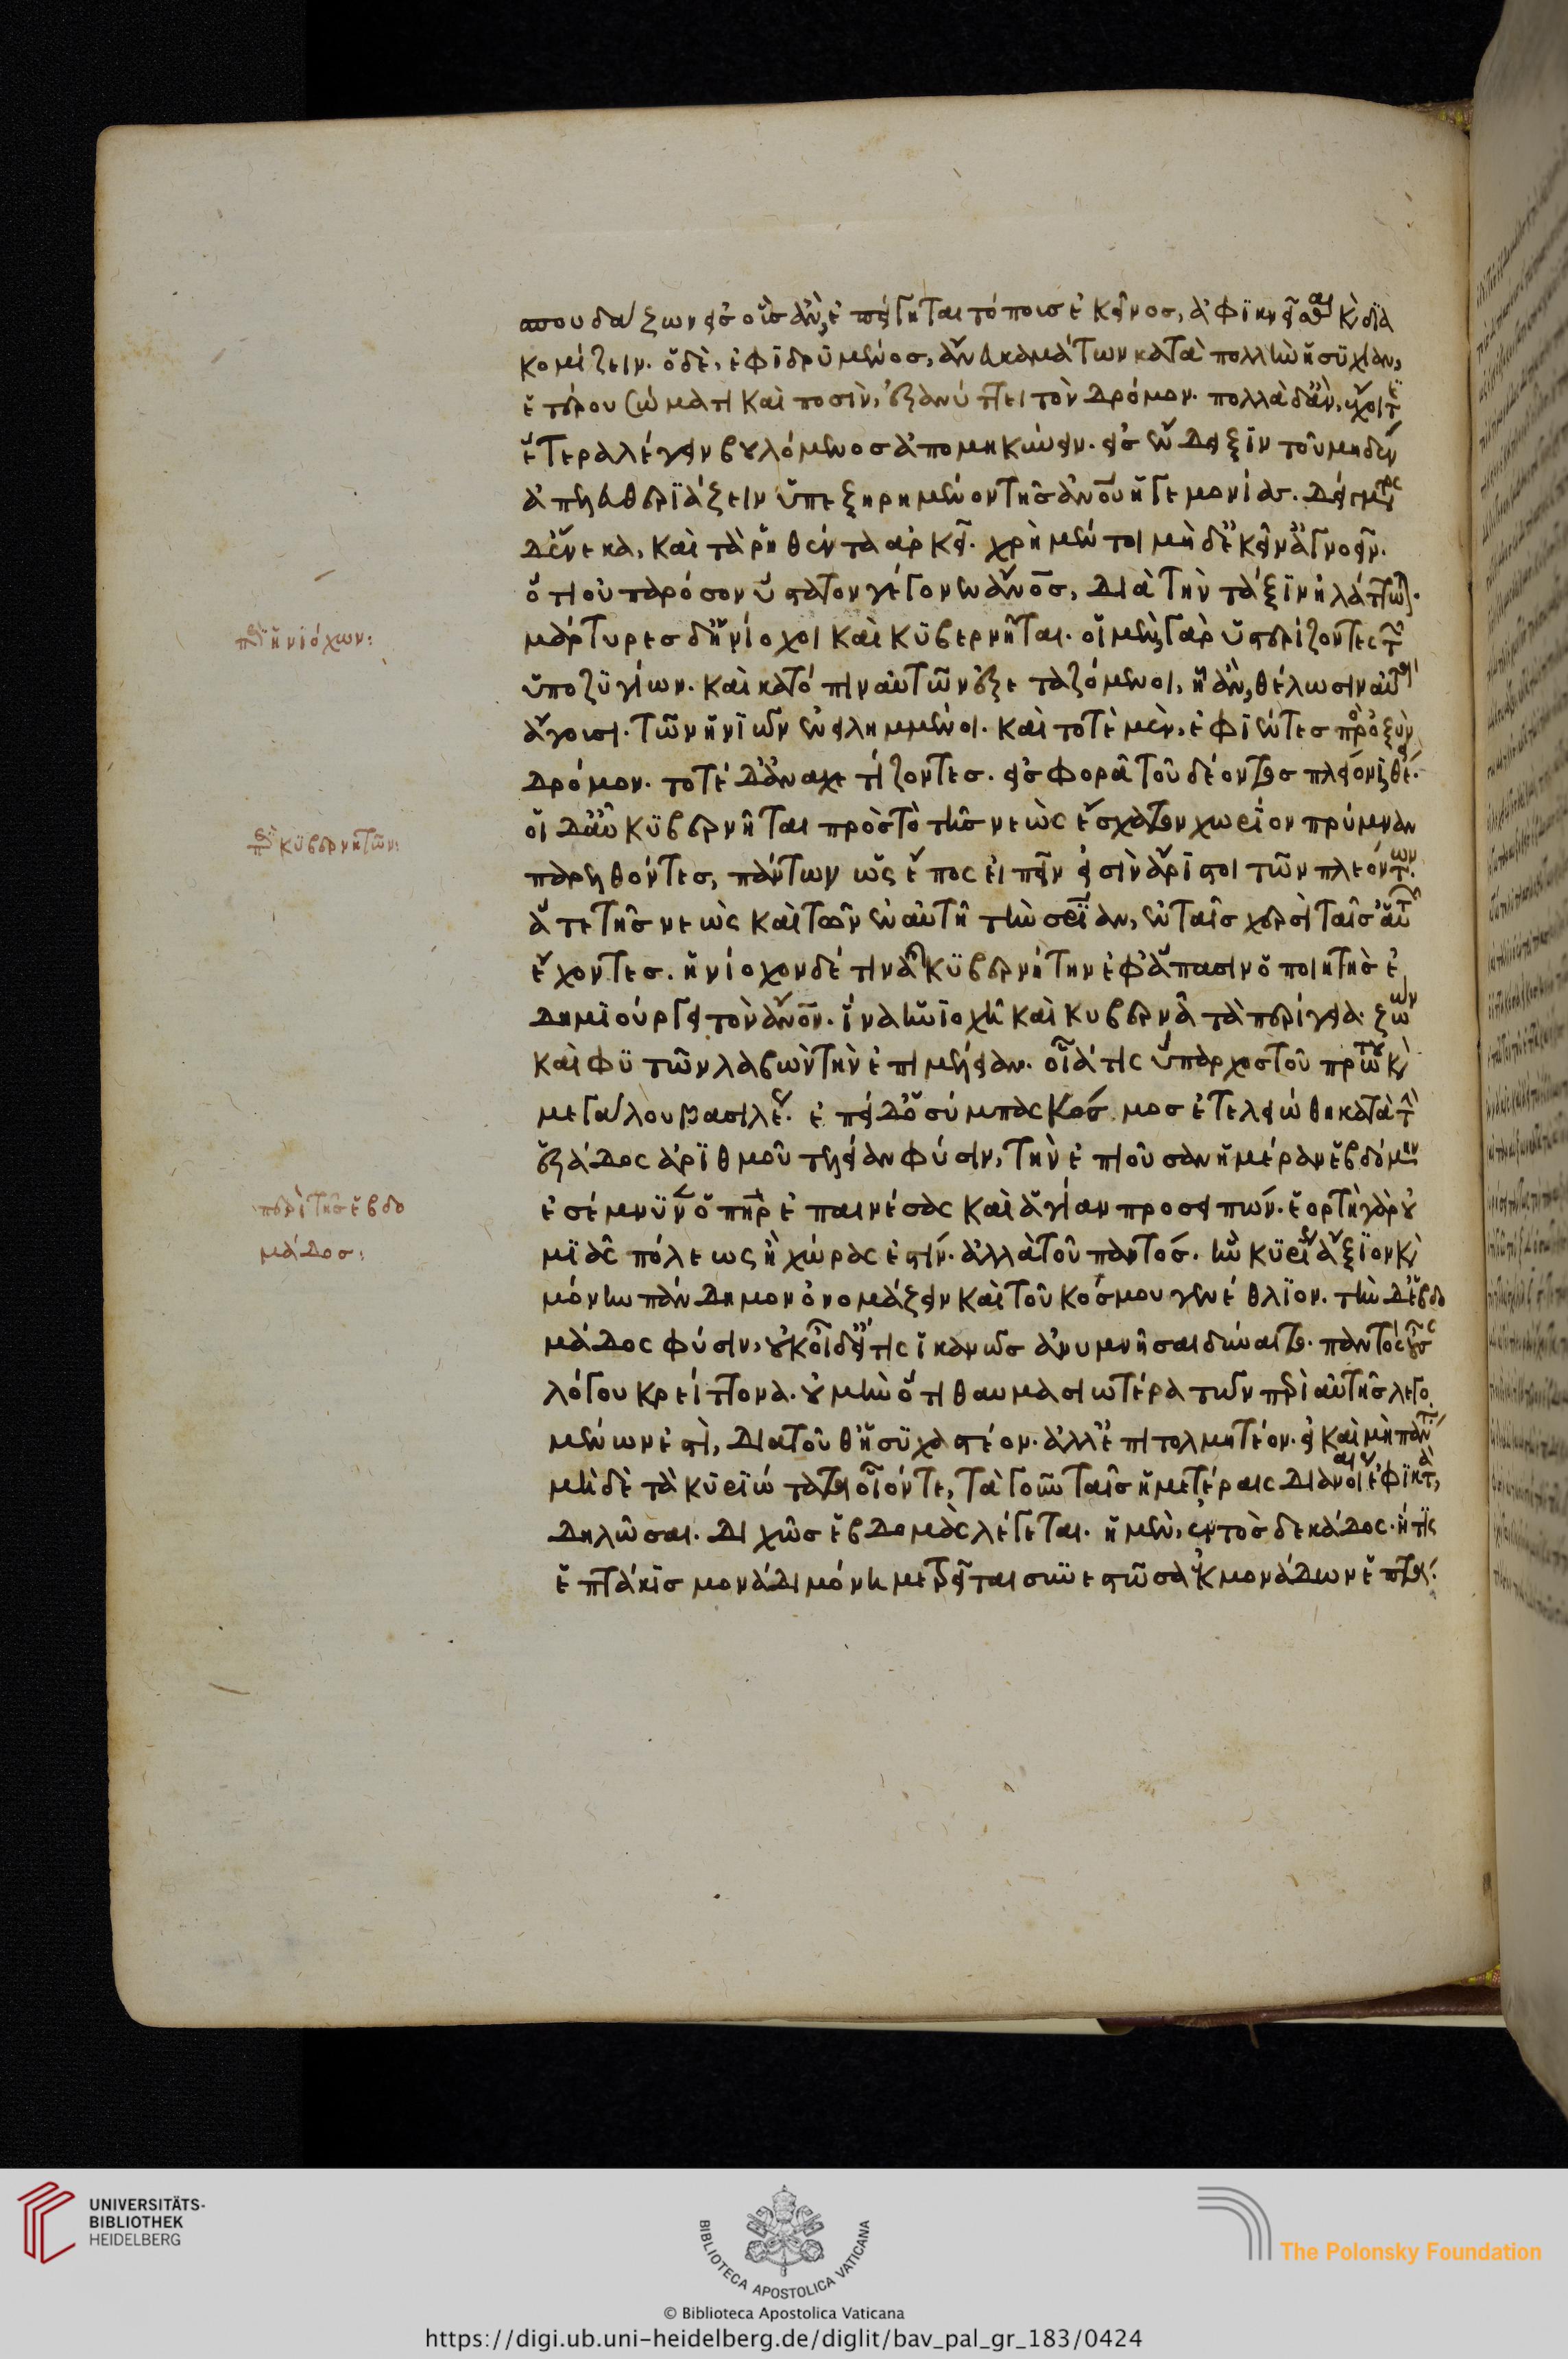 σπουδάζων εἰσ οἷσ ἂν, ἐπείγηται τόποισ ἐκεῖνοσ, ἀφϊκνεῖσθαι κὶ δϊα
κομίζειν. ὁ δὲ, ἐφϊδρϋμένοσ, ἄνευ καμάτων κατὰ πολλὴν ἡσϋχίαν,
ἑτέρου σώματι καὶ ποσὶν, ἐξανύττει τὸν δρόμον. πολλὰ δ᾽ ἂν, ἔχοι τ
ἕτερα λέγειν βουλόμενοσ ἀπομηκύνειν. εἰσ ἔνδειξϊν τοῦ μηδὲν
ἀπελευθερϊάζειν ὑπεξηρημένον τῆσ ἀνοῦ ἡγεμονίασ. δείγματος
δ᾽ ἕνεκα, καὶ τὰ ῥηθέντα ἀρκεῖ. χρὴ μέντοι μὴ δ᾽ ἐκεῖν᾽ ἀγνοεῖν.
ὅτι οὐ παρόσον ὕστατον γέγονεν ἄνοσ, διὰ τὴν τάξϊν ἠλάττωται.
μάρτυρεσ δ᾽ ἡνίοχοι καὶ κϋβερνῆται. οἱ μὲν, γὰρ ὑστερίζοντες τ
ὑποζϋγίων. καὶ κατόπιν αὐτῶν ἐξεταζόμενοι, ἢ ἂν, θέλωσιν αὐτ
ἄγουσι. τῶν ἡνϊῶν ἐνειλημμένοι. καὶ τοτὲ μὲν, ἐφϊέντεσ πρὸ ὀξὺν
δρόμον. τοτὲ δ᾽ ἀναχετίζοντεσ. εἰσ φορᾶ τοῦ δέοντοσ πλείονϊ θέ.
οἱ δ᾽ αὖ κϋβερνῆται πρὸσ τὸ τῆσ νεὼς ἔσχατον χωρίον πρύμναν
παρελθόντεσ, πάντων ὡς ἔπος εἰπεῖν εἰσὶν ἄρϊστοι τῶν πλεόντων.
ἅτε τῆσ νεὼς καὶ τῶν ἐν αὐτῆ τὴν σρϊαν, ἐν ταῖσ χερσὶ ταῖσ αὑτ
ἔχοντεσ. ἡνίοχον δέ τινα κϋβερνήτην ἐφ᾽ ἅπασιν ὁ ποιητὴσ ἐ
δημϊούργει τὸν ἄνον. ἵνα ἡνϊοχῆ καὶ κυβερνᾶ τὰ περίγεια. ζώων
καὶ φϋτῶν λαβὼν τὴν ἐπιμέλειαν. οἷά τις ὕπαρχοσ τοῦ πρώτου κὶ
μεγάλου βασιλέ. ἐπεὶ δ᾽ ὁ σύμπας κόσμοσ ἐτελειώθη κατὰ τ
ἑξάδος ἀρϊθμοῦ τελείαν φύσιν, τὴν ἐπιοῦσαν ἡμέραν ἑβδόμην
ἐσέμνϋν ὁ πηρ ἐπαινέσας καὶ ἁγίαν προσειπών. ἑορτὴ γὰρ οὐ
μϊᾶς πόλεως ἢ χώρας ἐστίν. ἀλλὰ τοῦ παντόσ. ἣν κϋρϊ ἄξϊον κὶ
μόνην πάνδημον ὀνομάζειν καὶ τοῦ κόσμου γενέθλϊον. τὴν δ᾽ ἑβδο
μάδος φύσιν, οὐκ οἶδ᾽ εἴ τις ἱκανῶσ ἀνυμνῆσαι δύναιτο. παντὸς οὖσ
λόγου κρείττονα. οὐ μὴν ὅτι θαυμασιωτέρα τῶν περὶ αὐτῆσ λεγο
μένων ἐστὶ, διατοῦθ᾽ ἡσϋχαστέον. ἀλλ᾽ ἐπιτολμητέον. εἰ καὶ μὴ πάντ
μὴ δὲ τὰ κϋρϊώτατα οἷόντε, τὰ γοῦν ταῖσ ἡμετέραις διανοίαι ἐφϊκτὰ,
δηλῶσαι. διχῶσ ἑβδομὰς λέγεται. ἡ μὲν, ἐντὸσ δεκάδος. ἥτϊς
ἑπτάκϊσ μονάδι μόνη μετρεῖται συνεστῶσα ἐκ μονάδων ἑπτά.
περὶ ἡνιόχων:
περὶ κϋβερνητῶν:
περὶ τῆσ ἑβδο
μάδοσ:
UNIVERSITÄTS-
BIBLIOTHEK
HEIDELBERG
BIBLIOTECA APOSTOLICA VATICANA
The Polonsky Foundation
© Biblioteca Apostolica Vaticana
https://digi.ub.uni-heidelberg.de/diglit/bav_pal_gr_183/0424